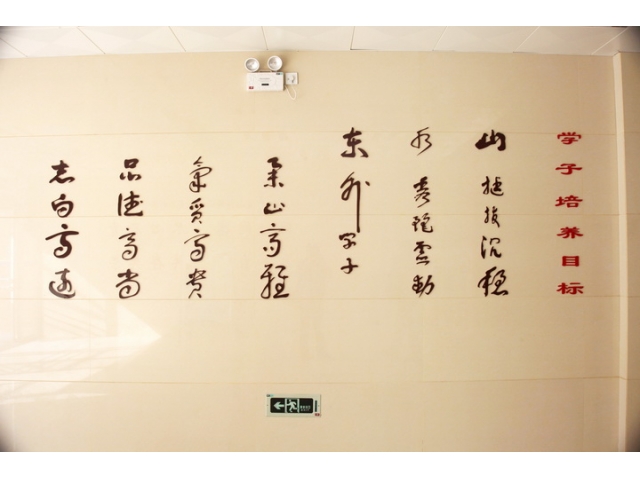 学子培养目标
山 挺拔沉稳
水 秀灵动
东外学子
举止高雅
氣质高贵
品德高尚
志向高远